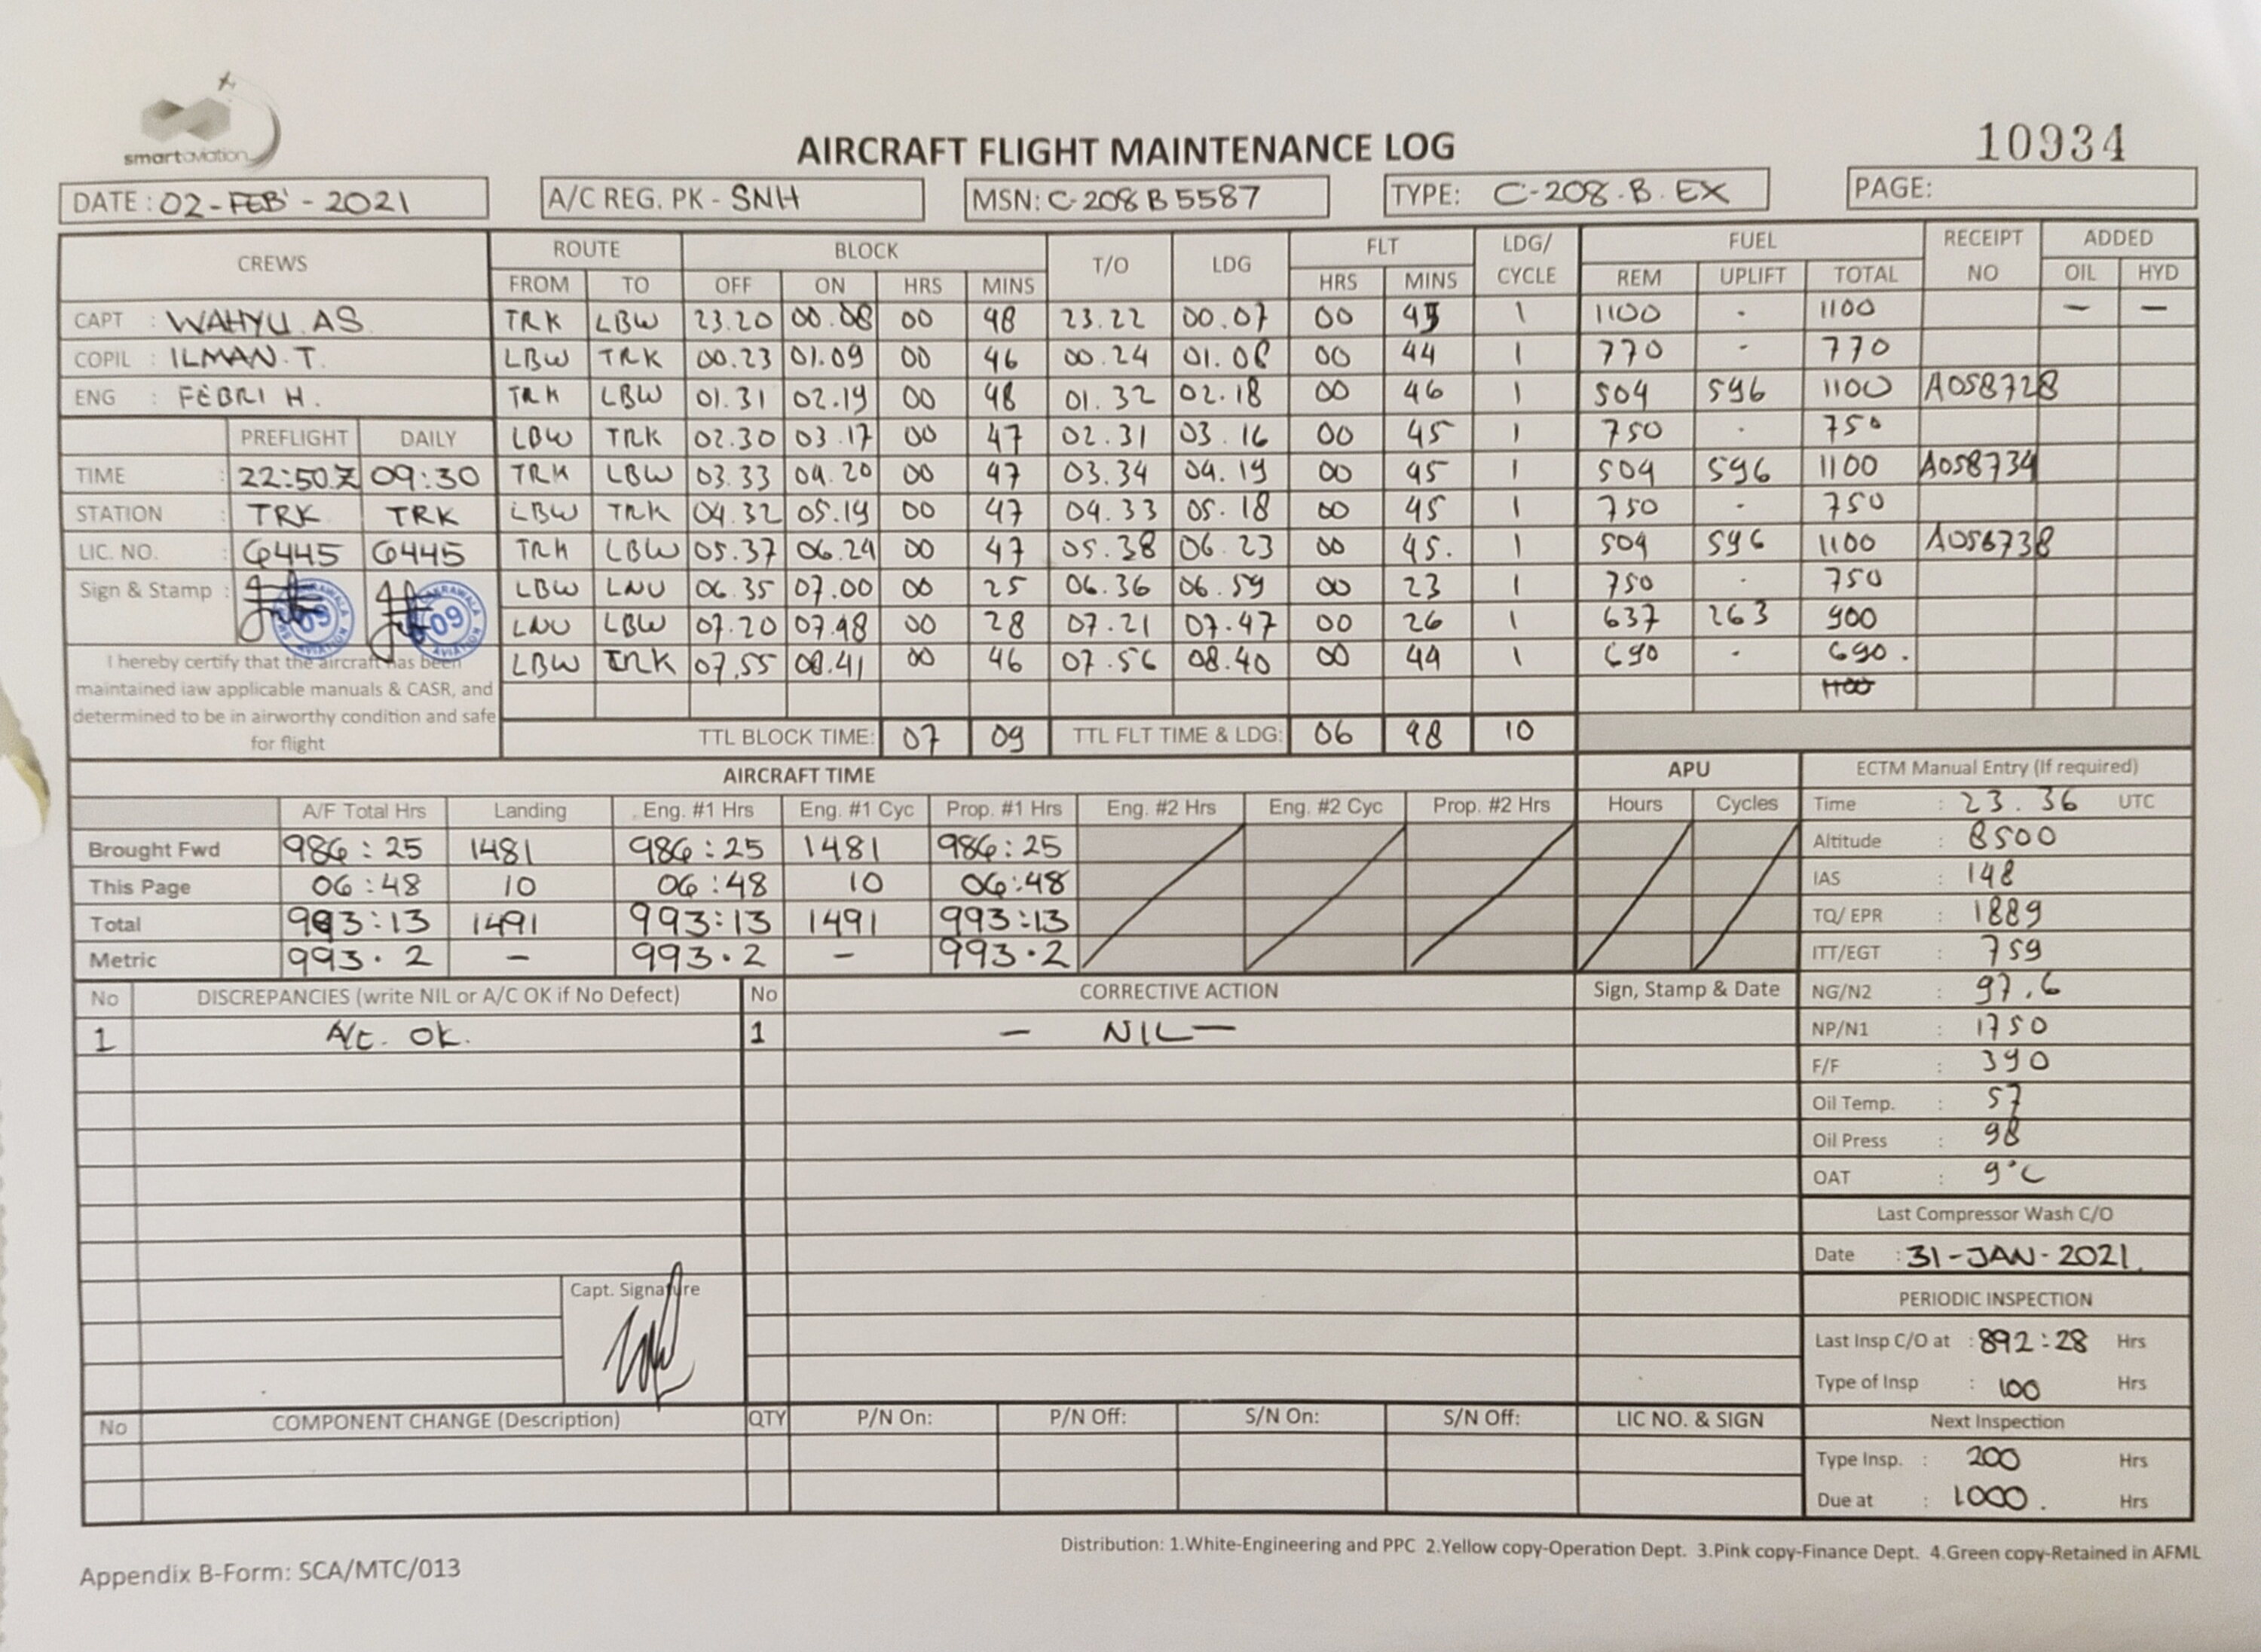 smartaviation
AIRCRAFT FLIGHT MAINTENANCE LOG
10934
DATE : 02-FEB'-2021 A/C REG. PK - SNH MSN: C-208 B 5587 TYPE: C-208.B.EX PAGE:
CREWS ROUTE BLOCK T/O LDG FLT LDG/ CYCLE FUEL RECEIPT NO ADDED
FROM TO OFF ON HRS MINS HRS MINS REM UPLIFT TOTAL OIL HYD
CAPT : WAHYU.AS TRK LBW 23.20 00.08 00 48 23.22 00.07 00 45 1 1100 - 1100 — —
COPIL : ILMAN.T. LBW TRK 00.23 01.09 00 46 00.24 01.08 00 44 1 770 - 770
ENG : FEBRI H. TRK LBW 01.31 02.19 00 48 01.32 02.18 00 46 1 504 596 1100 A058728
PREFLIGHT DAILY LBW TRK 02.30 03.17 00 47 02.31 03.16 00 45 1 750 - 750
TIME : 22:50Z 09:30 TRK LBW 03.33 04.20 00 47 03.34 04.19 00 45 1 504 596 1100 A058734
STATION : TRK TRK LBW TRK 04.32 05.19 00 47 04.33 05.18 00 45 1 750 - 750
LIC. NO. : 6445 6445 TRK LBW 05.37 06.24 00 47 05.38 06.23 00 45. 1 504 596 1100 A056738
Sign & Stamp : 09 09 LBW LNU 06.35 07.00 00 25 06.36 06.59 00 23 1 750 - 750
LNU LBW 07.20 07.48 00 28 07.21 07.47 00 26 1 637 263 900
I hereby certify that the aircraft has been LBW TRK 07.55 08.41 00 46 07.56 08.40 00 44 1 690 - 690.
maintained iaw applicable manuals & CASR, and 1100
determined to be in airworthy condition and safe
for flight TTL BLOCK TIME: 07 09 TTL FLT TIME & LDG: 06 48 10
AIRCRAFT TIME APU ECTM Manual Entry (If required)
A/F Total Hrs Landing Eng. #1 Hrs Eng. #1 Cyc Prop. #1 Hrs Eng. #2 Hrs Eng. #2 Cyc Prop. #2 Hrs Hours Cycles Time : 23.36 UTC
Brought Fwd 986:25 1481 986:25 1481 986:25 Altitude : 8500
This Page 06:48 10 06:48 10 06:48 IAS : 148
Total 993:13 1491 993:13 1491 993:13 TQ/ EPR : 1889
Metric 993.2 - 993.2 - 993.2 ITT/EGT : 759
No DISCREPANCIES (write NIL or A/C OK if No Defect) No CORRECTIVE ACTION Sign, Stamp & Date NG/N2 : 97.6
1 A/C. OK. 1 — NIL — NP/N1 : 1750
F/F : 390
Oil Temp. : 57
Oil Press : 98
OAT : 9°C
Last Compressor Wash C/O
Date : 31-JAN-2021.
Capt. Signature
PERIODIC INSPECTION
Last Insp C/O at : 892:28 Hrs
Type of Insp : 100 Hrs
No COMPONENT CHANGE (Description) QTY P/N On: P/N Off: S/N On: S/N Off: LIC NO. & SIGN Next Inspection
Type Insp. : 200 Hrs
Due at : 1000. Hrs
Distribution: 1.White-Engineering and PPC 2.Yellow copy-Operation Dept. 3.Pink copy-Finance Dept. 4.Green copy-Retained in AFML
Appendix B-Form: SCA/MTC/013